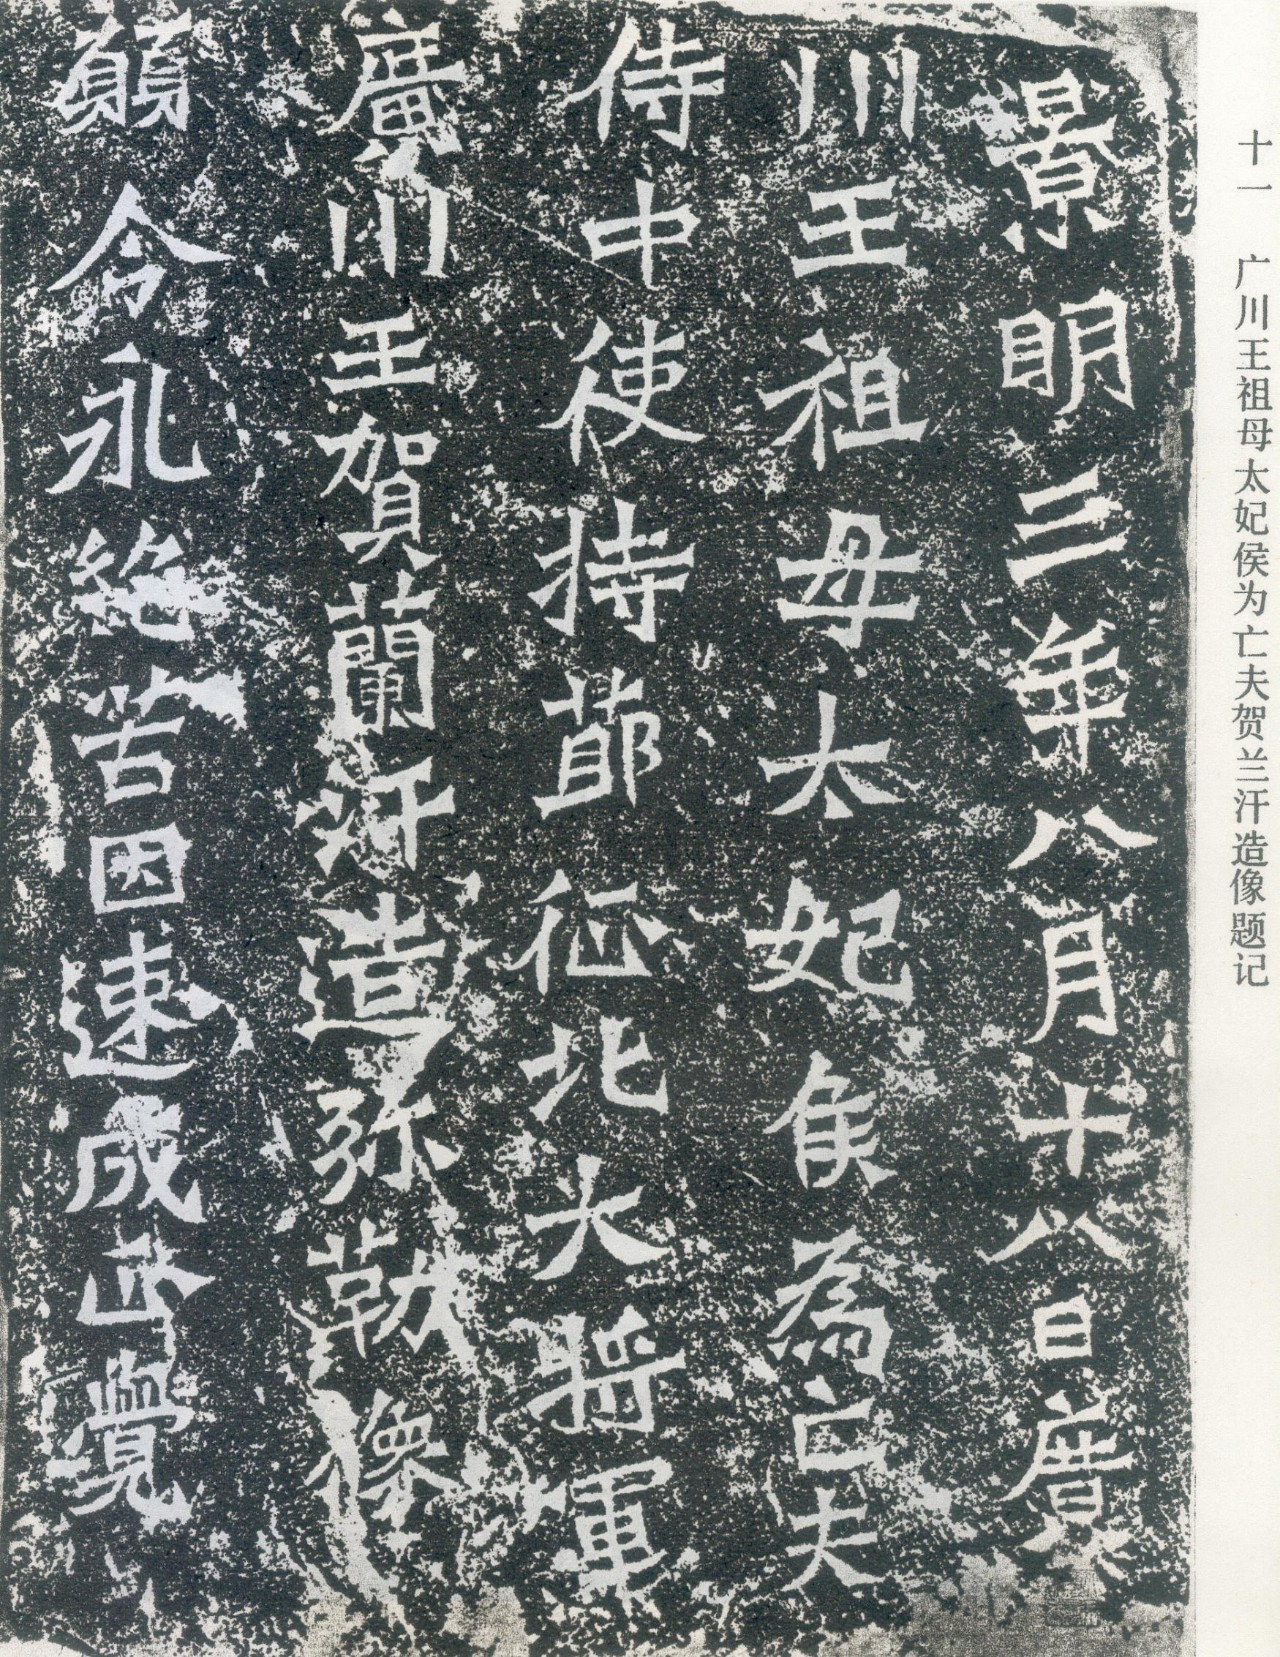 十一 广川王祖母太妃侯为亡夫贺兰汗造像题记
景明三年八月十八日廣
川王祖母太妃侯為亡夫
侍中使持節征北大將軍
廣川王賀蘭汗造弥勒像
願令永絕苦因速成正覺